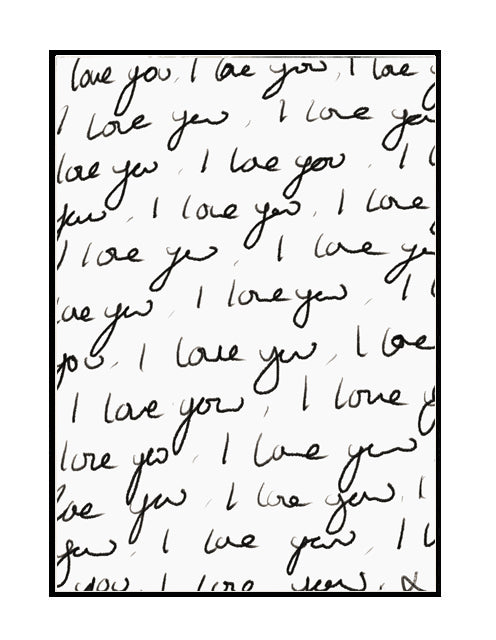 love you, I love you, I love y
I love you, I love you
love you, I love you, I l
you, I love you, I love
I love you, I love yo
love you, I love you, I l
you, I love you, I love
I love you, I love y
love you, I love you
love you, I love you, I
you, I love you, I l
you, I love you,